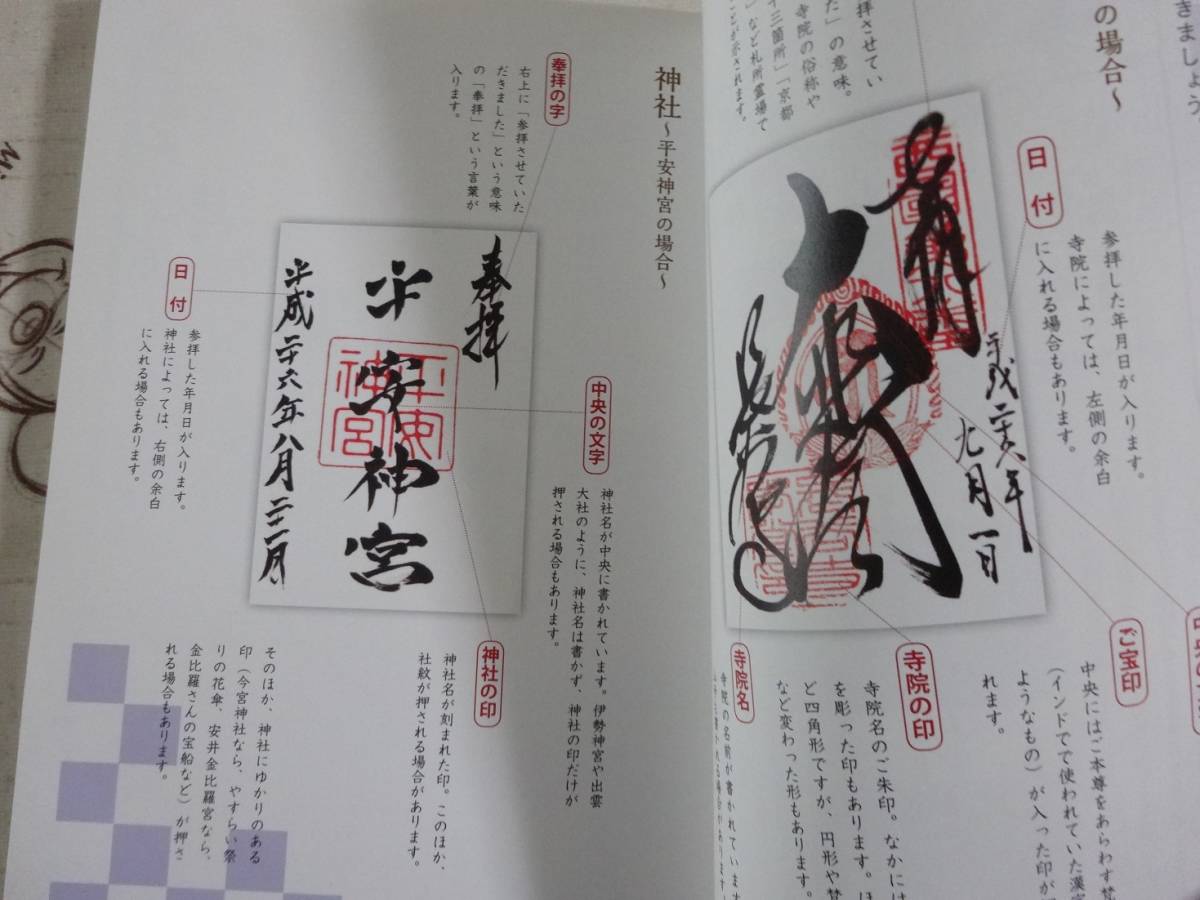 きましょう
の場合〜
拝させてい
た」の意味。
寺院の俗称や
十三箇所」「京都
」など札所霊場で
ことが示されます。
日付
参拝した年月日が入ります。
寺院によっては、左側の余白
に入れる場合もあります。
平成二十六年
九月一日
ご宝印
中央にはご本尊をあらわす梵
(インドでで使われていた漢字
ようなもの)が入った印が
れます。
寺院の印
寺院名のご朱印。なかには
を彫った印もあります。ほ
ど四角形ですが、円形や梵
など変わった形もあります。
寺院名
寺院の名前が書かれています
神社〜平安神宮の場合〜
奉拝の字
右上に「参拝させていた
だきました」という意味
の「奉拝」という言葉が
入ります。
奉拝
平安神宮
平安
神宮
平成二十六年八月二十一日
中央の文字
神社名が中央に書かれています。伊勢神宮や出雲
大社のように、神社名は書かず、神社の印だけが
押される場合もあります。
日付
参拝した年月日が入ります。
神社によっては、右側の余白
に入れる場合もあります。
神社の印
神社名が刻まれた印。このほか、
社紋が押される場合があります。
そのほか、神社にゆかりのある
印(今宮神社なら、やすらい祭
りの花傘、安井金比羅宮なら、
金比羅さんの宝船など)が押さ
れる場合もあります。